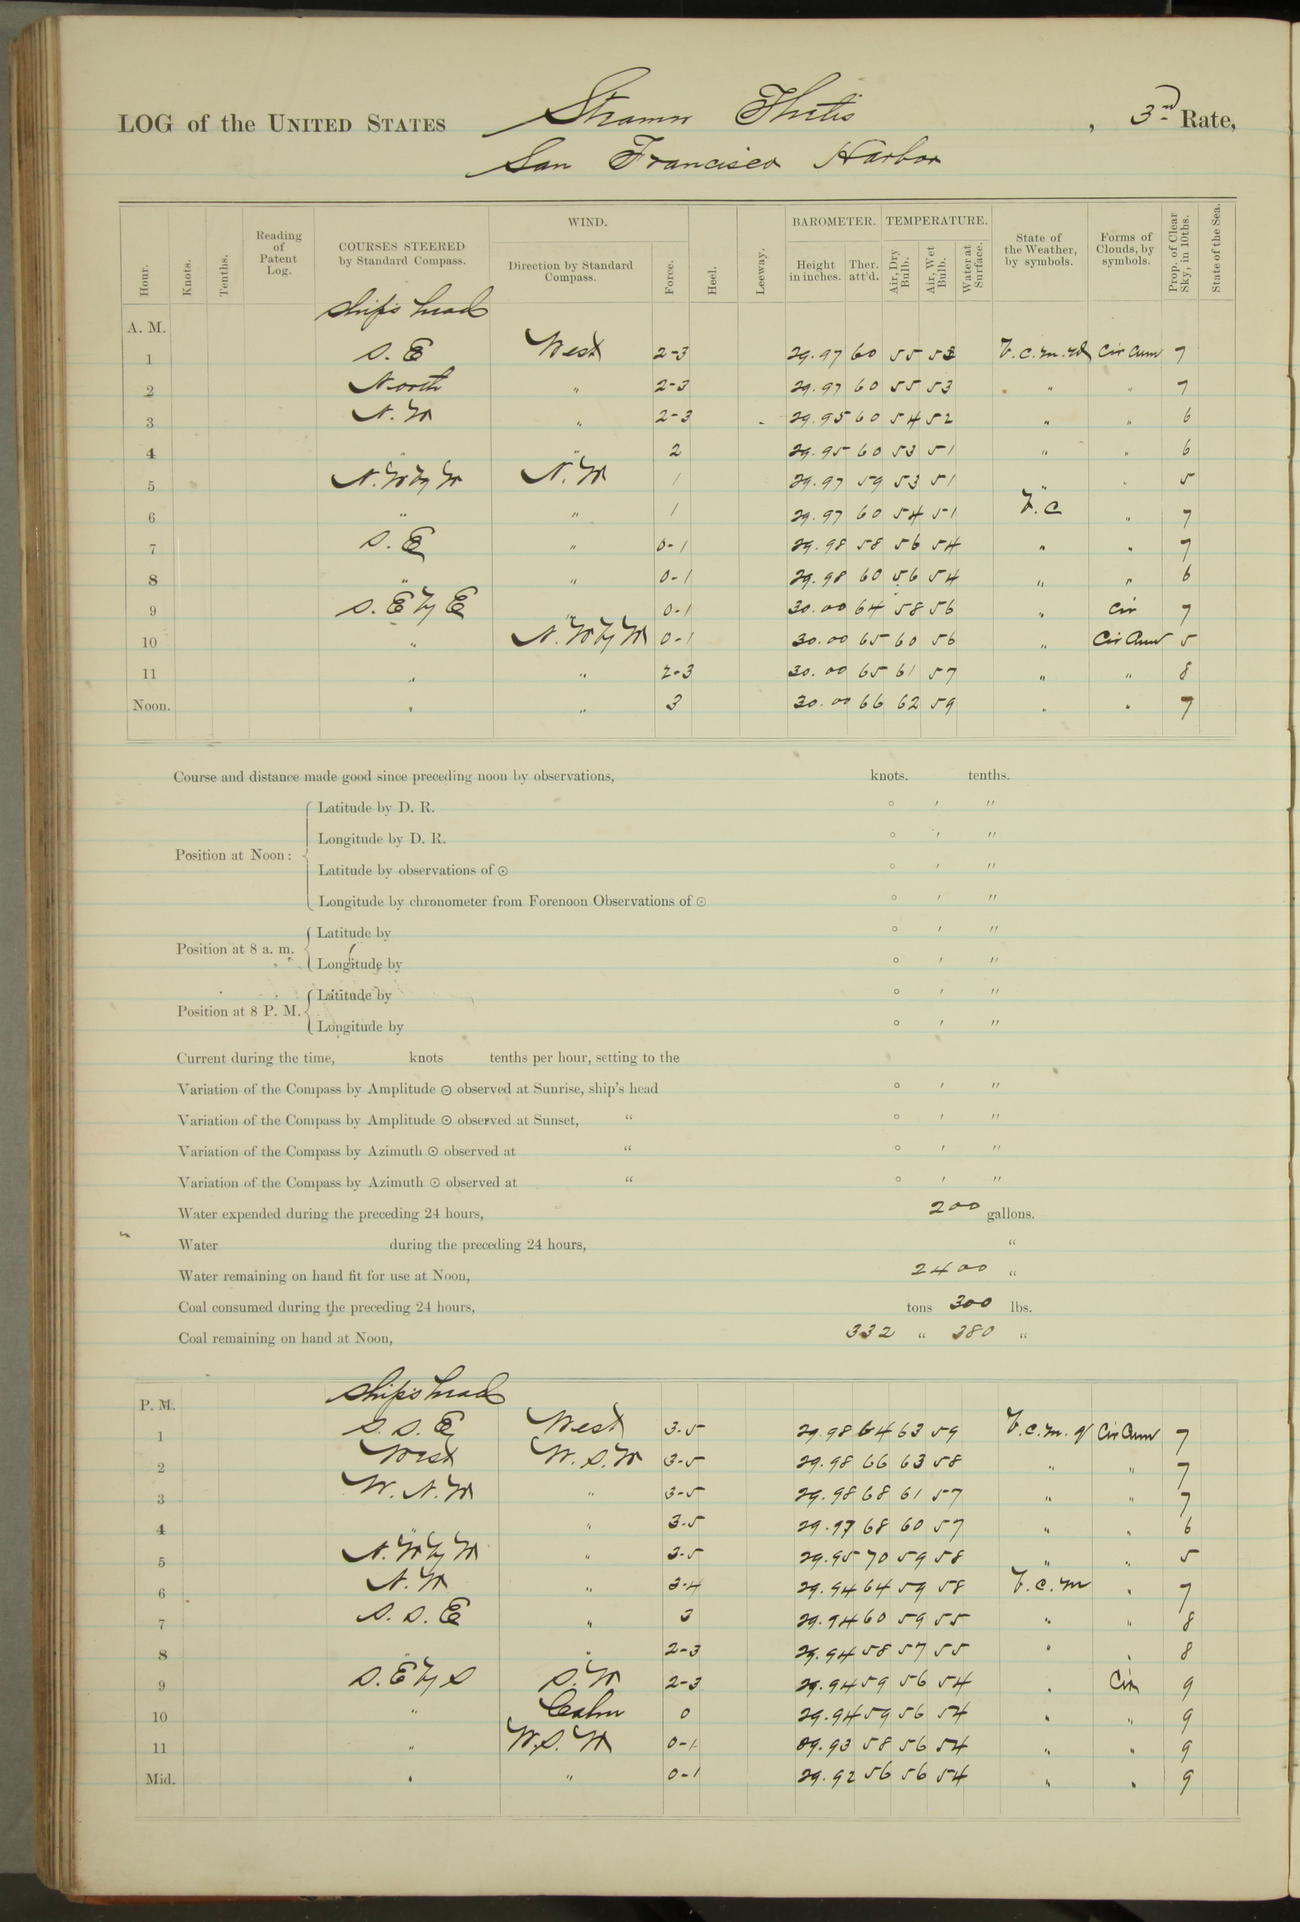 LOG of the UNITED STATES Steamer Thetis , 3rd Rate,
San Francisco Harbor
Hour. Knots. Tenths. Reading of Patent Log. COURSES STEERED by Standard Compass. WIND. Direction by Standard Compass. Force. Heel. Leeway. BAROMETER. Height in inches. Ther. att'd. TEMPERATURE. Air, Dry Bulb. Air, Wet Bulb. Water at Surface. State of the Weather, by symbols. Forms of Clouds, by symbols. Prop. of Clear Sky, in 10ths. State of the Sea.
ship's head
A. M.
1 S. E West 2-3 29.97 60 55 53 b.c.m. Cir Cum 7
2 North " 2-3 29.97 60 55 53 " " 7
3 N. W " 2-3 29.95 60 54 52 " " 6
4 " " 2 29.95 60 53 51 " " 6
5 N.W by W N. W 1 29.97 59 53 51 " " 5
6 " " 1 29.97 60 54 51 b. c " 7
7 S. E " 0-1 29.98 58 56 54 " " 7
8 " " 0-1 29.98 60 56 54 " " 6
9 S. E by E " 0-1 30.00 64 58 56 " Cir 7
10 " N. W by W 0-1 30.00 65 60 56 " Cir Cum 5
11 " " 2-3 30.00 65 61 57 " " 8
Noon. " " 3 30.00 66 62 59 " " 7
Course and distance made good since preceding noon by observations, knots. tenths.
Position at Noon:
Latitude by D. R. ° ′ ″
Longitude by D. R. ° ′ ″
Latitude by observations of ☉ ° ′ ″
Longitude by chronometer from Forenoon Observations of ☉ ° ′ ″
Position at 8 a. m.
Latitude by ° ′ ″
Longitude by ° ′ ″
Position at 8 P. M.
Latitude by ° ′ ″
Longitude by ° ′ ″
Current during the time, knots tenths per hour, setting to the
Variation of the Compass by Amplitude ☉ observed at Sunrise, ship's head ° ′ ″
Variation of the Compass by Amplitude ☉ observed at Sunset, " ° ′ ″
Variation of the Compass by Azimuth ☉ observed at " ° ′ ″
Variation of the Compass by Azimuth ☉ observed at " ° ′ ″
Water expended during the preceding 24 hours, 200 gallons.
Water during the preceding 24 hours, "
Water remaining on hand fit for use at Noon, 2400 "
Coal consumed during the preceding 24 hours, tons 300 lbs.
Coal remaining on hand at Noon, 332 " 380 "
ship's head
P. M.
1 S. S. E West 3-5 29.98 64 63 59 b.c.m. q Cir Cum 7
2 West W. S. W 3-5 29.98 66 63 58 " " 7
3 W. N. W " 3-5 29.98 68 61 57 " " 7
4 " " 3-5 29.97 68 60 57 " " 6
5 N. W by W " 3-5 29.95 70 59 58 " " 5
6 N. W " 3-4 29.94 64 59 58 b. c. m " 7
7 S. S. E " 3 29.94 60 59 55 " " 8
8 " " 2-3 29.94 58 57 55 " " 8
9 S. E by S S. W 2-3 29.94 59 56 54 " Cir 9
10 " Calm 0 29.94 59 56 54 " " 9
11 " W. S. W 0-1 29.93 58 56 54 " " 9
Mid. " " 0-1 29.92 56 56 54 " " 9